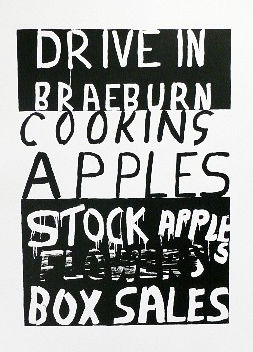 DRIVE IN
BRAEBURN
COOKINS
APPLES
STOCK APPLES
FLOWERS
BOX SALES